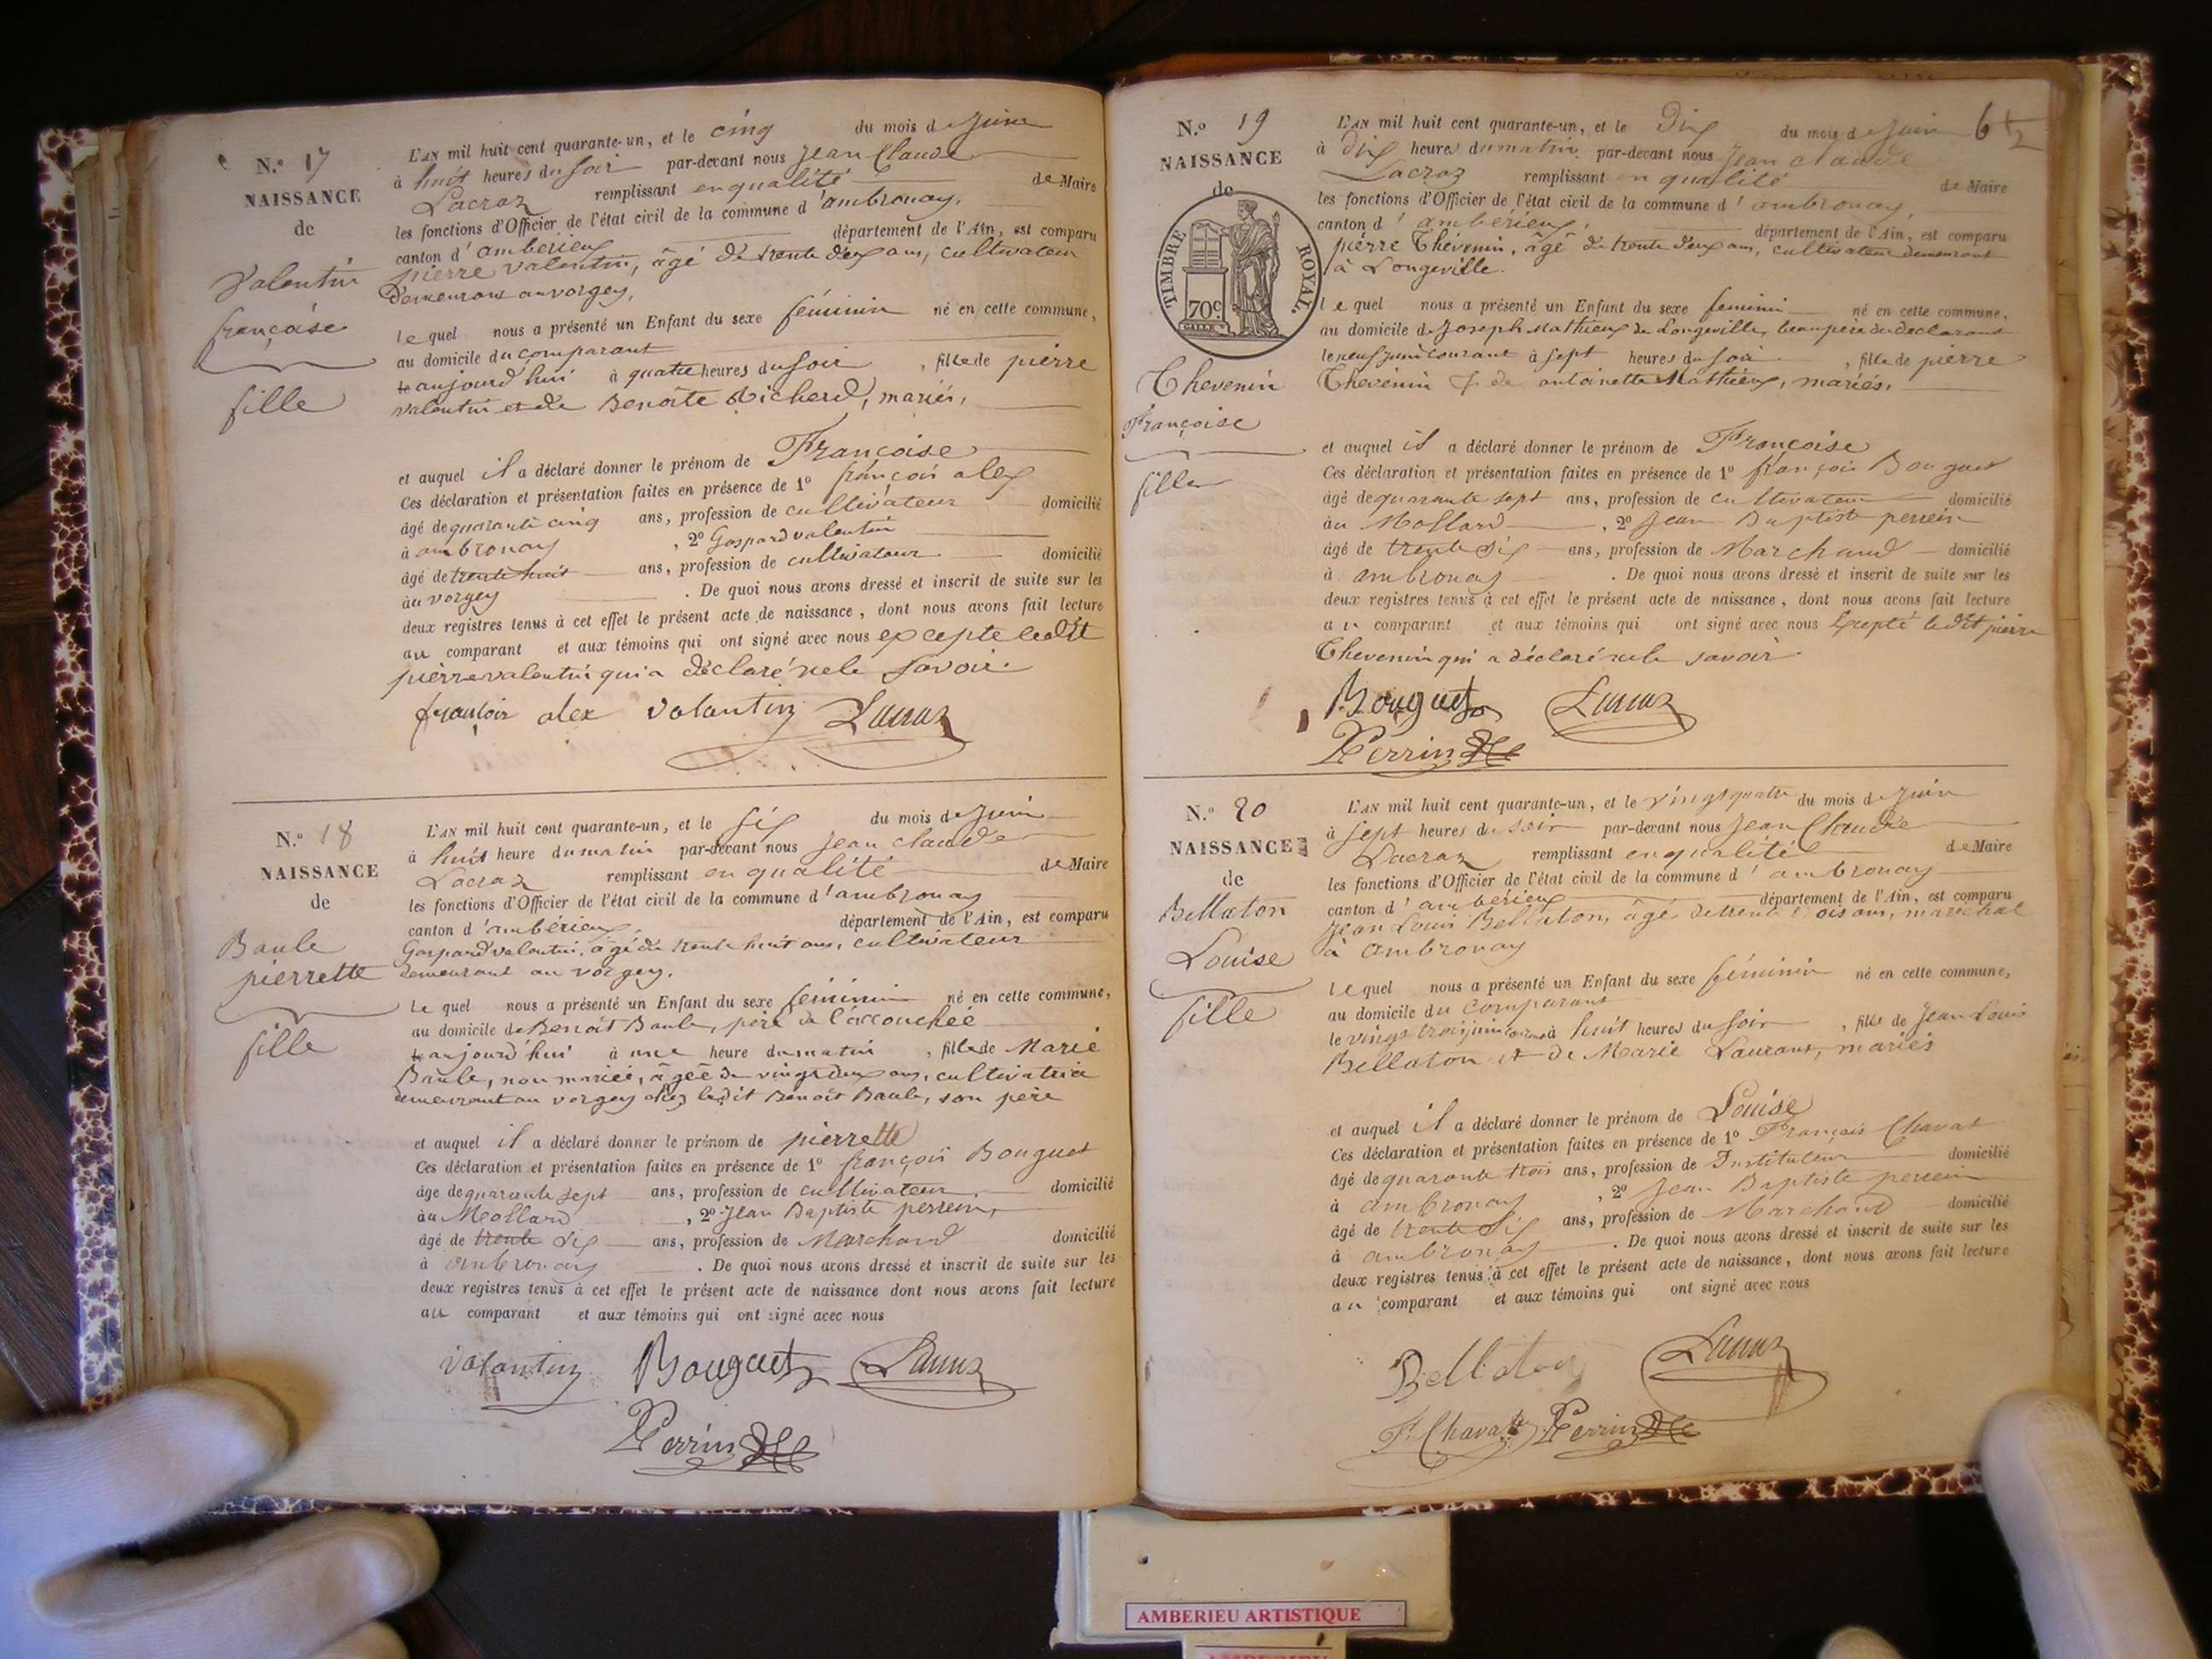 N.º 17
NAISSANCE
de
Valentin
françoise
fille
L'AN mil huit cent quarante-un, et le cinq du mois de Juin
à huit heures du soir par-devant nous Jean Claude
Lacraz remplissant en qualité de Maire
les fonctions d'Officier de l'état civil de la commune d'ambronay,
canton d'ambérieux département de l'Ain, est comparu
pierre valentin, âgé de trente deux ans, cultivateur
demeurant au vorgey,
lequel nous a présenté un Enfant du sexe féminin né en cette commune,
au domicile du comparant
le aujourd'hui à quatre heures du soir, fille de pierre
valentin et de Benoite Richerd, mariés,
et auquel il a déclaré donner le prénom de Françoise
Ces déclaration et présentation faites en présence de 1º françois alex
âgé de quarante cinq ans, profession de cultivateur domicilié
à ambronay, 2º Gaspard valentin
âgé de trente huit ans, profession de cultivateur domicilié
au vorgey. De quoi nous avons dressé et inscrit de suite sur les
deux registres tenus à cet effet le présent acte de naissance, dont nous avons fait lecture
au comparant et aux témoins qui ont signé avec nous excepté ledit
pierre valentin qui a déclaré ne le savoir.
françois alex valantin Lacraz
N.º 18
NAISSANCE
de
Baule
pierrette
fille
L'AN mil huit cent quarante-un, et le six du mois de Juin
à huit heure du matin par-devant nous Jean claude
Lacraz remplissant en qualité de Maire
les fonctions d'Officier de l'état civil de la commune d'ambronay
canton d'ambérieux, département de l'Ain, est comparu
Gaspard valentin, âgé de trente huit ans, cultivateur
demeurant au vorgey.
lequel nous a présenté un Enfant du sexe féminin né en cette commune,
au domicile de Benoit Baule, père de l'accouchée
le aujourd'hui à une heure du matin, fille de Marie
Baule, non mariée, âgée de vingt deux ans, cultivatrice
demeurant au vorgey chez ledit Benoit Baule, son père
et auquel il a déclaré donner le prénom de pierrette
Ces déclaration et présentation faites en présence de 1º françois Bouguet
âge de quarante sept ans, profession de cultivateur domicilié
au Mollard, 2º Jean Baptiste perrein,
âgé de trente six ans, profession de Marchand domicilié
à ambronay. De quoi nous avons dressé et inscrit de suite sur les
deux registres tenus à cet effet le présent acte de naissance dont nous avons fait lecture
au comparant et aux témoins qui ont signé avec nous
valantin Bouguet Lacraz
Perrin
N.º 19
NAISSANCE
de
TIMBRE ROYAL.
70c
Thevenin
Françoise
fille
L'AN mil huit cent quarante-un, et le Dix du mois de Juin
à Dix heures du matin par-devant nous Jean claude
Lacraz remplissant en qualité de Maire
les fonctions d'Officier de l'état civil de la commune d'ambronay,
canton d'ambérieux, département de l'Ain, est comparu
pierre Thevenin, âgé de trente deux ans, cultivateur demeurant
à Longeville.
lequel nous a présenté un Enfant du sexe feminin né en cette commune,
au domicile de Joseph Mathieux de Longeville, beau père du déclarant
le neuf juin courant à sept heures du soir, fille de pierre
Thevenin & de antoinette Mathieux, mariés,
et auquel il a déclaré donner le prénom de Françoise
Ces déclaration et présentation faites en présence de 1º françois Bouguet
âgé de quarante sept ans, profession de cultivateur domicilié
au Mollard, 2º Jean Baptiste perrein
âgé de trente six ans, profession de Marchand domicilié
à ambronay. De quoi nous avons dressé et inscrit de suite sur les
deux registres tenus à cet effet le présent acte de naissance, dont nous avons fait lecture
au comparant et aux témoins qui ont signé avec nous Excepté ledit pierre
Thevenin qui a déclaré ne le savoir.
Bouguet Lacraz
Perrin
N.º 20
NAISSANCE
de
Bellaton
Louise
fille
L'AN mil huit cent quarante-un, et le vingt quatre du mois de Juin
à sept heures du soir par-devant nous Jean Claude
Lacraz remplissant en qualité de Maire
les fonctions d'Officier de l'état civil de la commune d'ambronay
canton d'ambérieux département de l'Ain, est comparu
Jean Louis Bellaton, âgé de trente trois ans, marechal
à ambronay
lequel nous a présenté un Enfant du sexe féminin né en cette commune,
au domicile du comparant
le vingt trois juin courant à huit heures du soir, fille de Jean Louis
Bellaton et de Marie Laurant, mariés
et auquel il a déclaré donner le prénom de Louise
Ces déclaration et présentation faites en présence de 1º François Chavat
âgé de quarante trois ans, profession de Instituteur domicilié
à ambronay, 2º Jean Baptiste perrein
âgé de trente six ans, profession de Marchand domicilié
à ambronay. De quoi nous avons dressé et inscrit de suite sur les
deux registres tenus à cet effet le présent acte de naissance, dont nous avons fait lecture
au comparant et aux témoins qui ont signé avec nous
Bellaton Lacraz
F. Chavat Perrin
AMBERIEU ARTISTIQUE